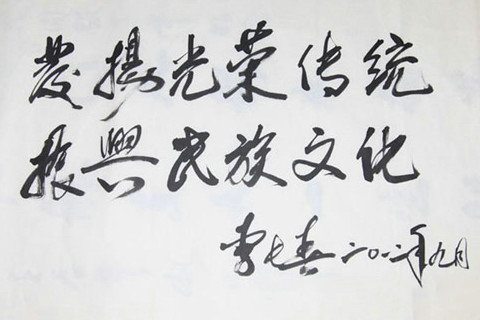 發揚光荣传统
振興民族文化
李长春二〇一二年九月